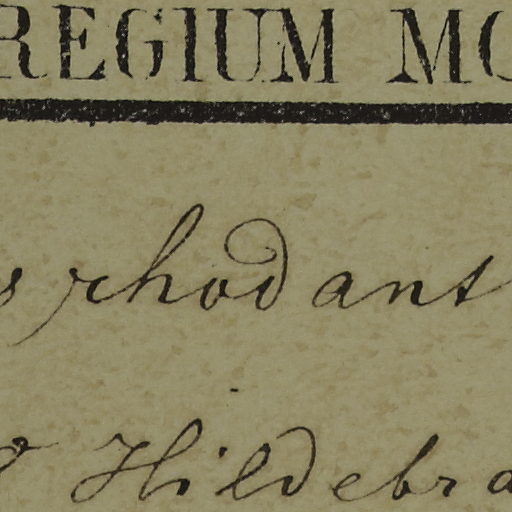 REGIUM MO
s rhodant
Hildebra